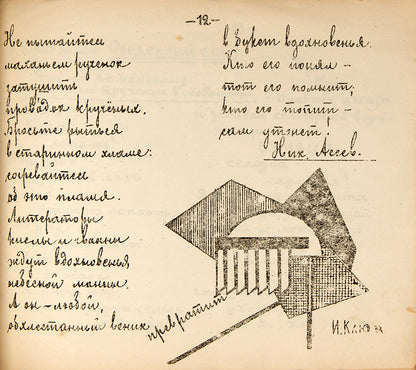 —12—
Не пытайтесь
маханьем рученок
затушить
проводок кручёных.
Бросьте рыться
в старинном хламе:
согревайтесь
об это пламя.
Литераторы
кислы и чванны
ждут вдохновенья
небесной манны.
А он—любой,
обхлестанный веник
превратит
в букет вдохновенья.
Кто его понял—
тот его помнит,
кто его топит—
сам утонет!
Ник. Асеев.
И. Клюн